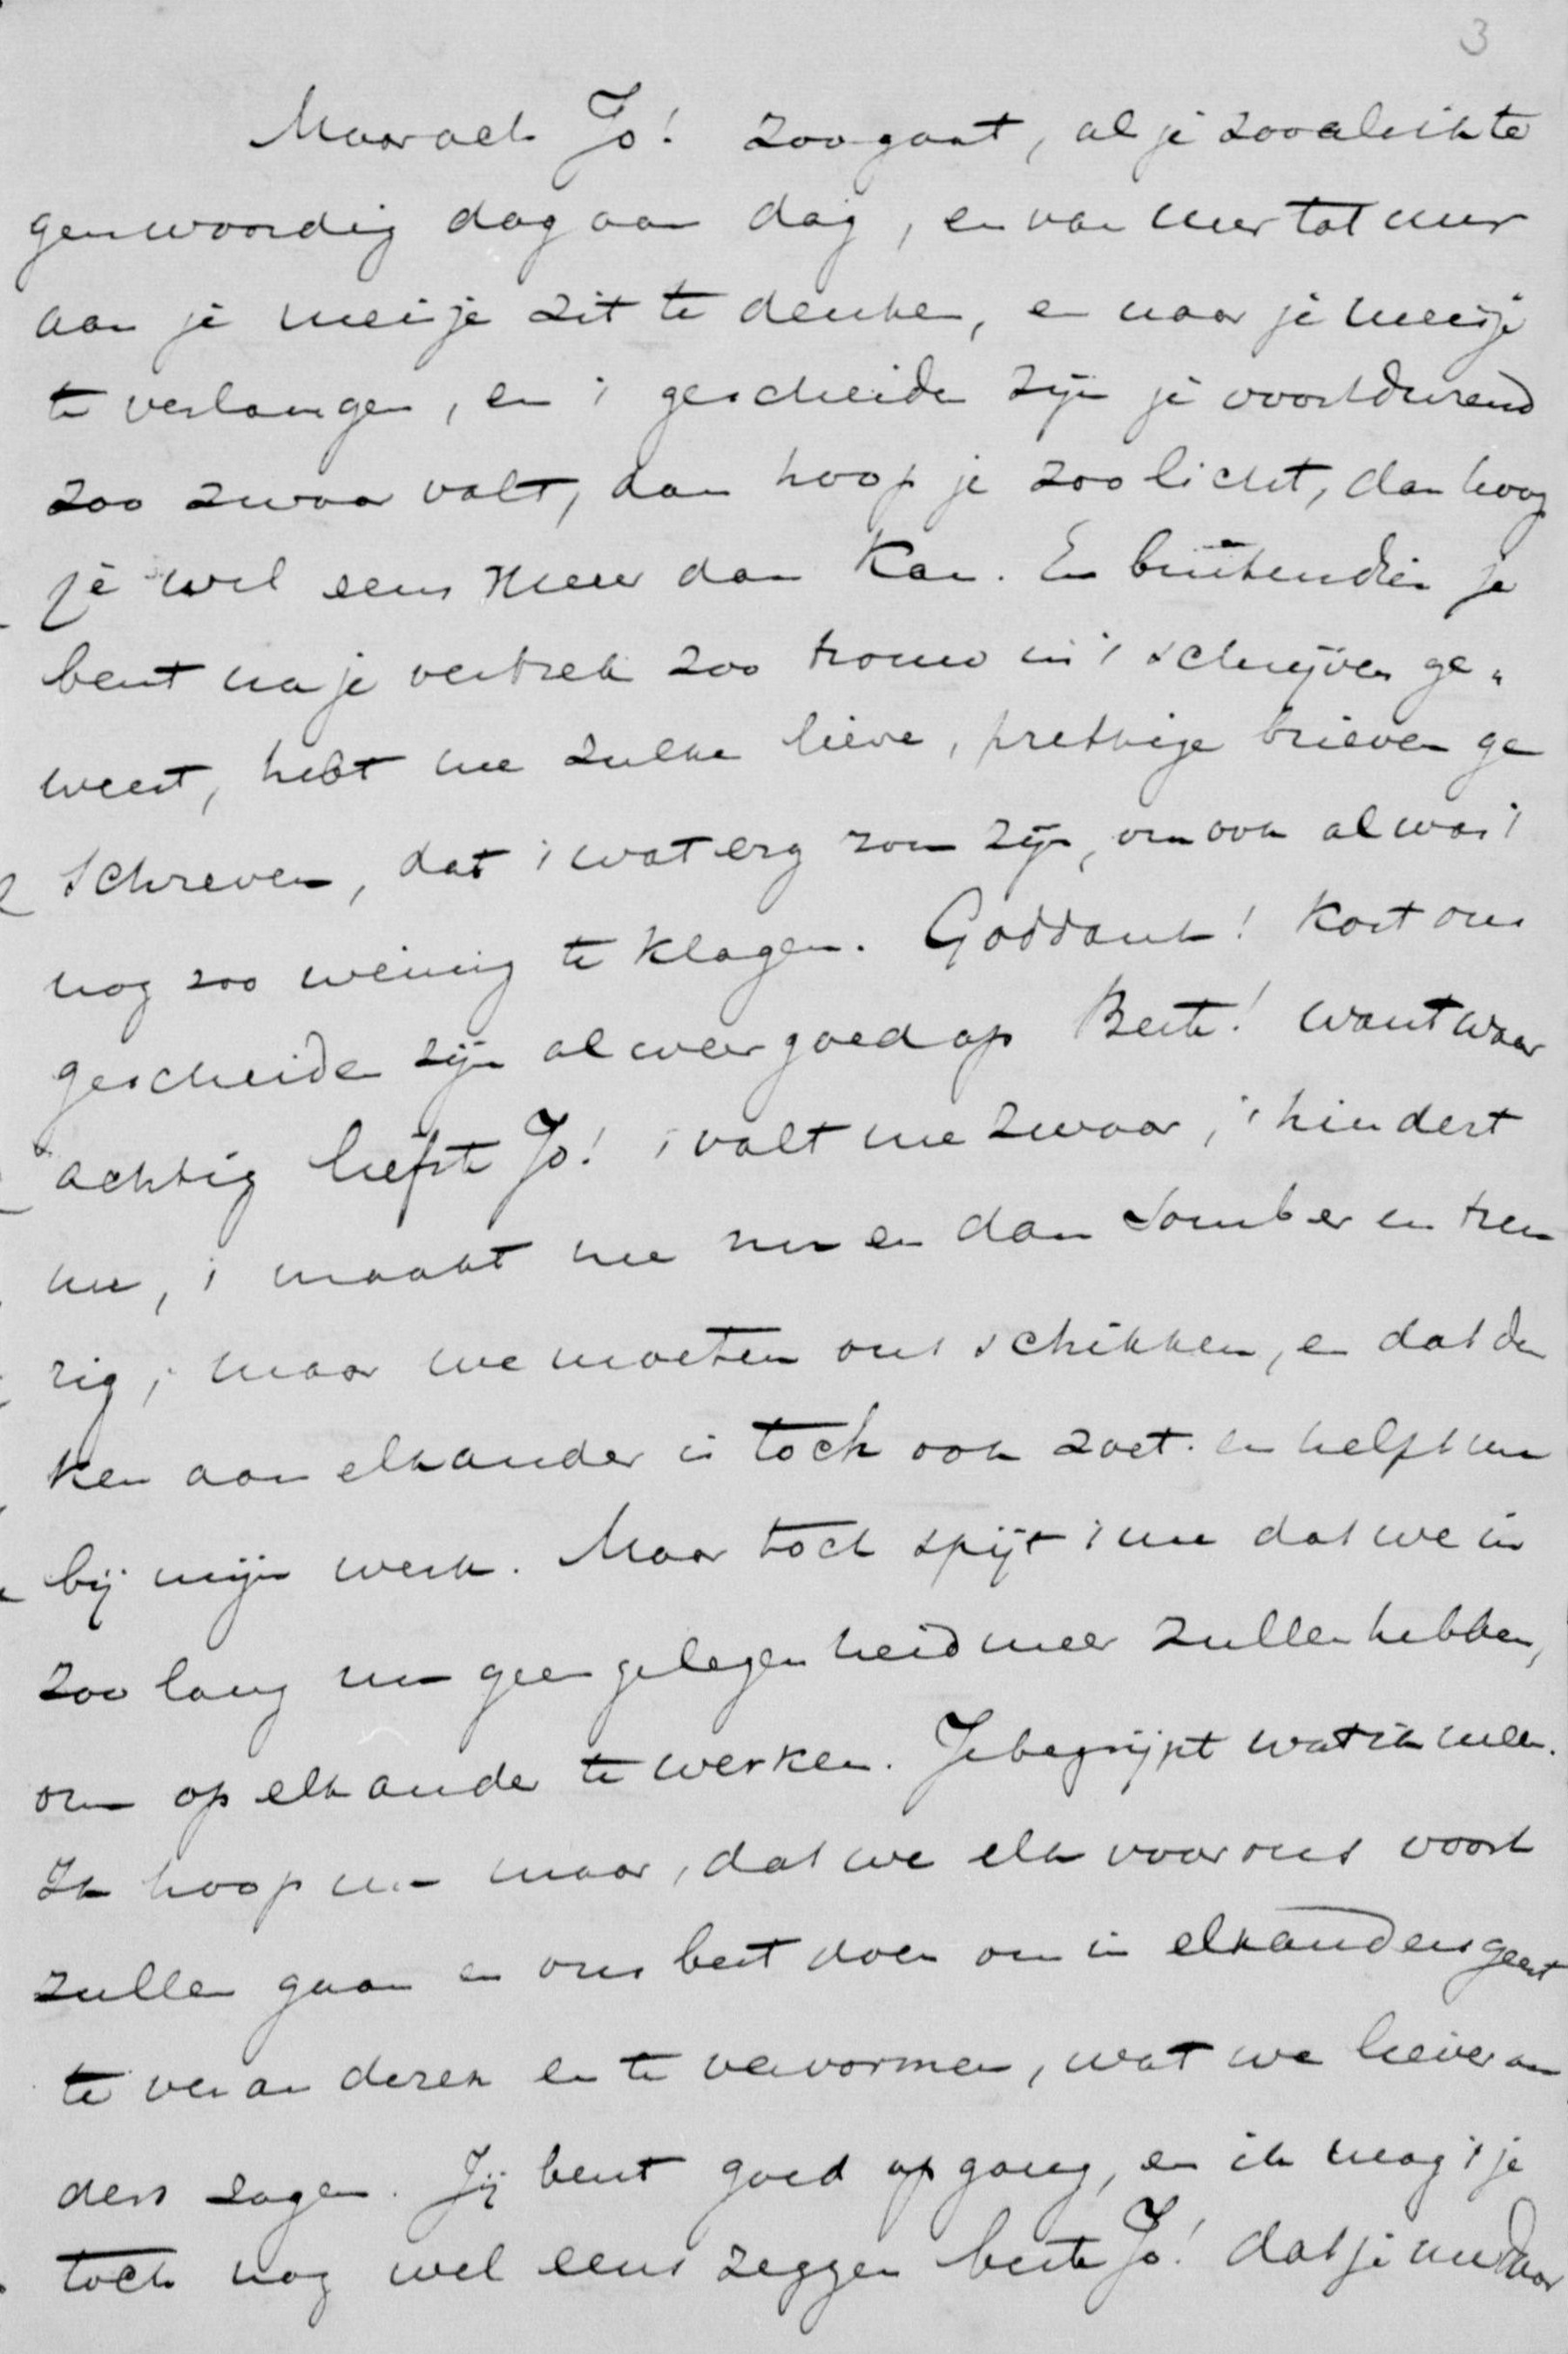 3
Maar ach Jo! zoo gaat, al je zooals ik te
genwoordig dag aan dag, en van uur tot uur
aan je meisje zit te denken, en naar je meisje
te verlangen, en 't gescheiden zijn je voortdurend
zoo zwaar valt, dan hoop je zoo licht, dan hoop
je wel eens meer dan kan. En buitendien je
bent na je vertrek zoo trouw in 't schrijven ge„
weest, hebt me zulke lieve, prettige brieven ge
schreven, dat 't wat erg zou zijn, om ook al was 't
nog zoo weinig te klagen. Goddank! kort ons
gescheiden zijn al weer goed op Beste! want waar
achtig liefste Jo! 't valt me zwaar, 't hindert
me, 't maakt me nu en dan somber en treu
rig; maar we moeten ons schikken, en dat den
ken aan elkander is toch ook zoet. en helpt me
bij mijn werk. Maar toch spijt 't me dat we in
zoo lang nu geen gelegenheid meer zullen hebben,
om op elkander te werken. Je begrijpt wat ik meen.
Ik hoop nu maar, dat we elk voor ons voort
zullen gaan en ons best doen om in elkanders geest
te veranderen en te vervormen, wat we liever an
ders zagen. Jij bent goed op gang, en ik mag 't je
toch nog wel eens zeggen beste Jo! dat je me daar